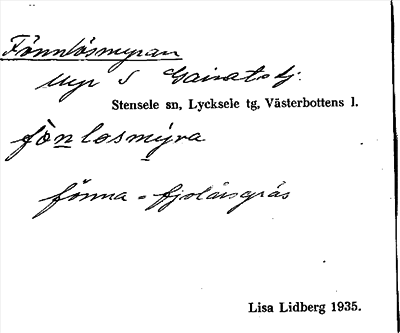 Fönnlösmyran
Myr S Gainatsbj.
Stensele sn, Lycksele tg, Västerbottens l.
fönlosmýra
fönna = fjolårsgräs
Lisa Lidberg 1935.